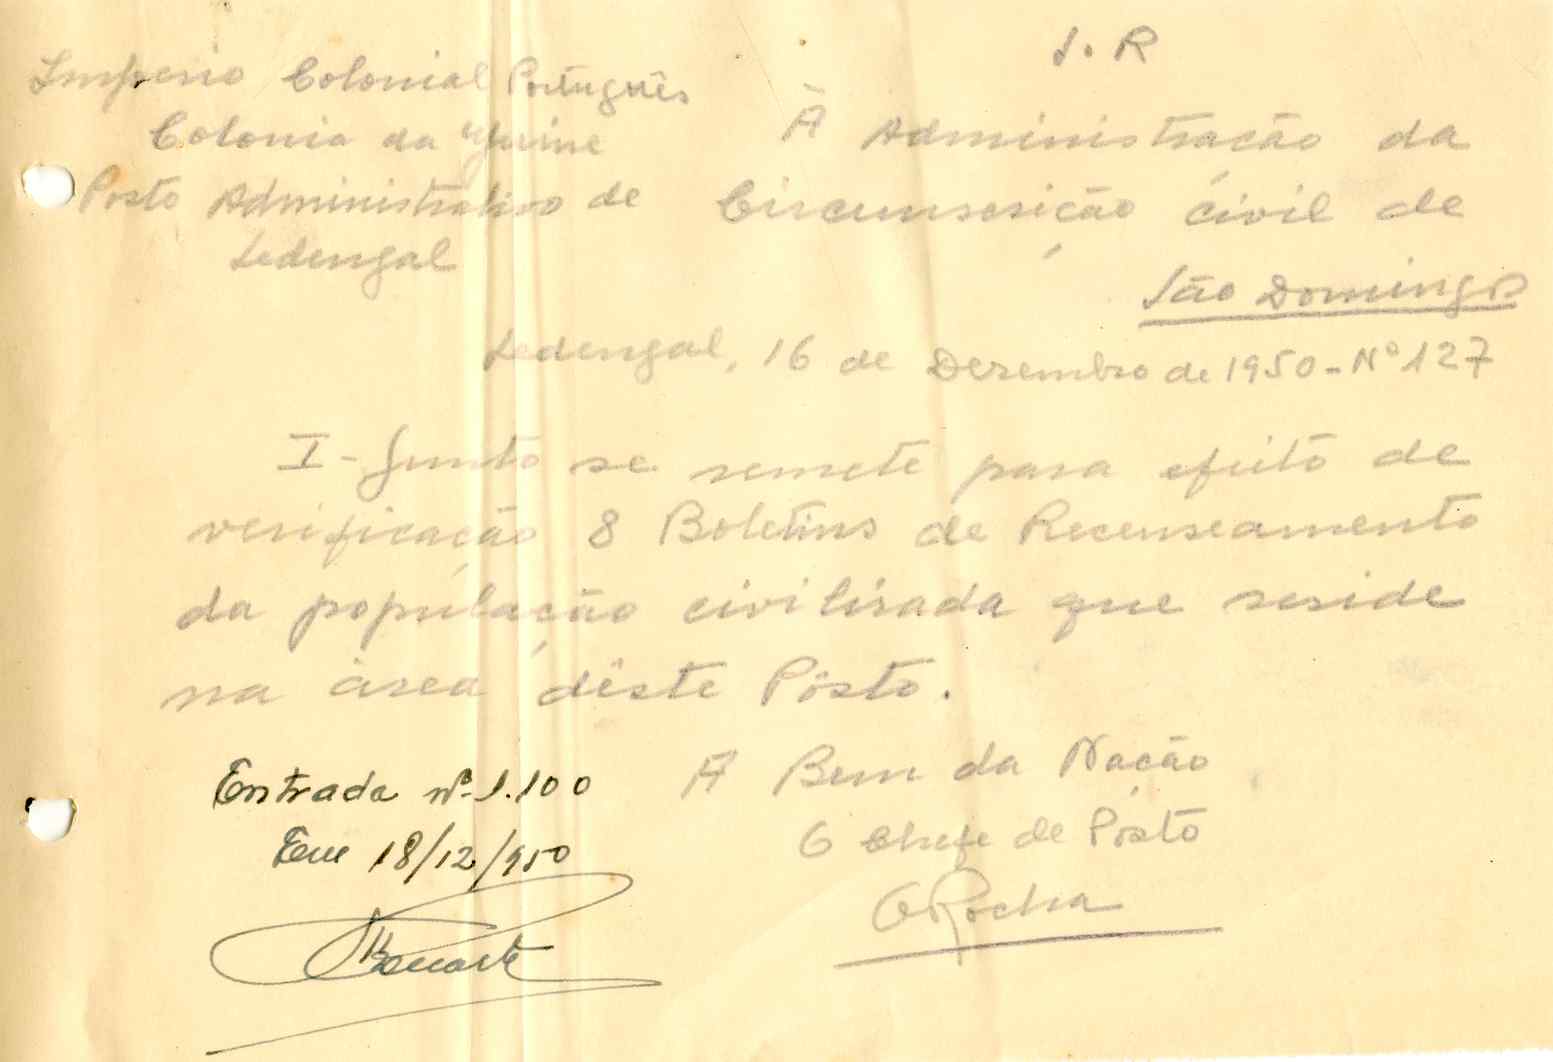 S. R
Imperio Colonial Português
Colonia da Guine
Posto Administrativo de
Sedengal
À Administração da
Circunscrição civil de
São Domingos
Sedengal, 16 de Dezembro de 1950 - Nº 127
I - Junto se remete para efeito de
verificação 8 Boletins de Recenseamento
da população civilizada que reside
na área dêste Pôsto.
A Bem da Nação
O Chefe de Pôsto
Rocha
Entrada nº 1.100
Em 18/12/950